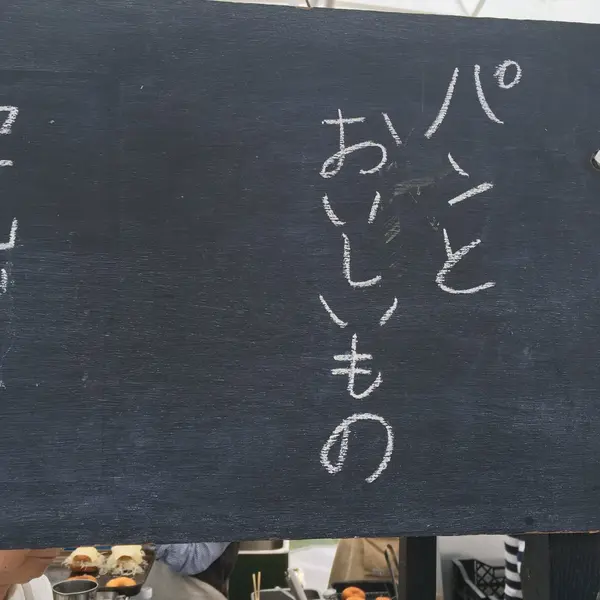 パンと
おいしいもの